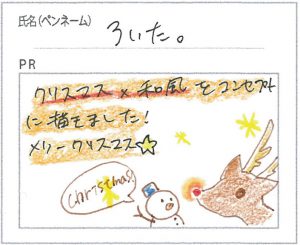 氏名(ペンネーム)
ろいた。
PR
クリスマス×和風をコンセプト
に描きました!
メリークリスマス☆
Christmas!